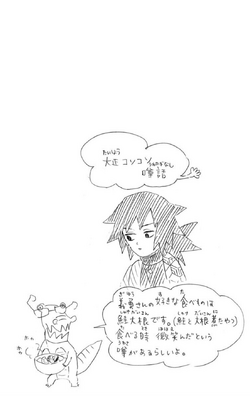 大正コソコソ
噂話
義勇さんの好きな食べものは
鮭大根です。(鮭と大根煮たやつ)
食べる時 微笑んだという
噂があるらしいよ。